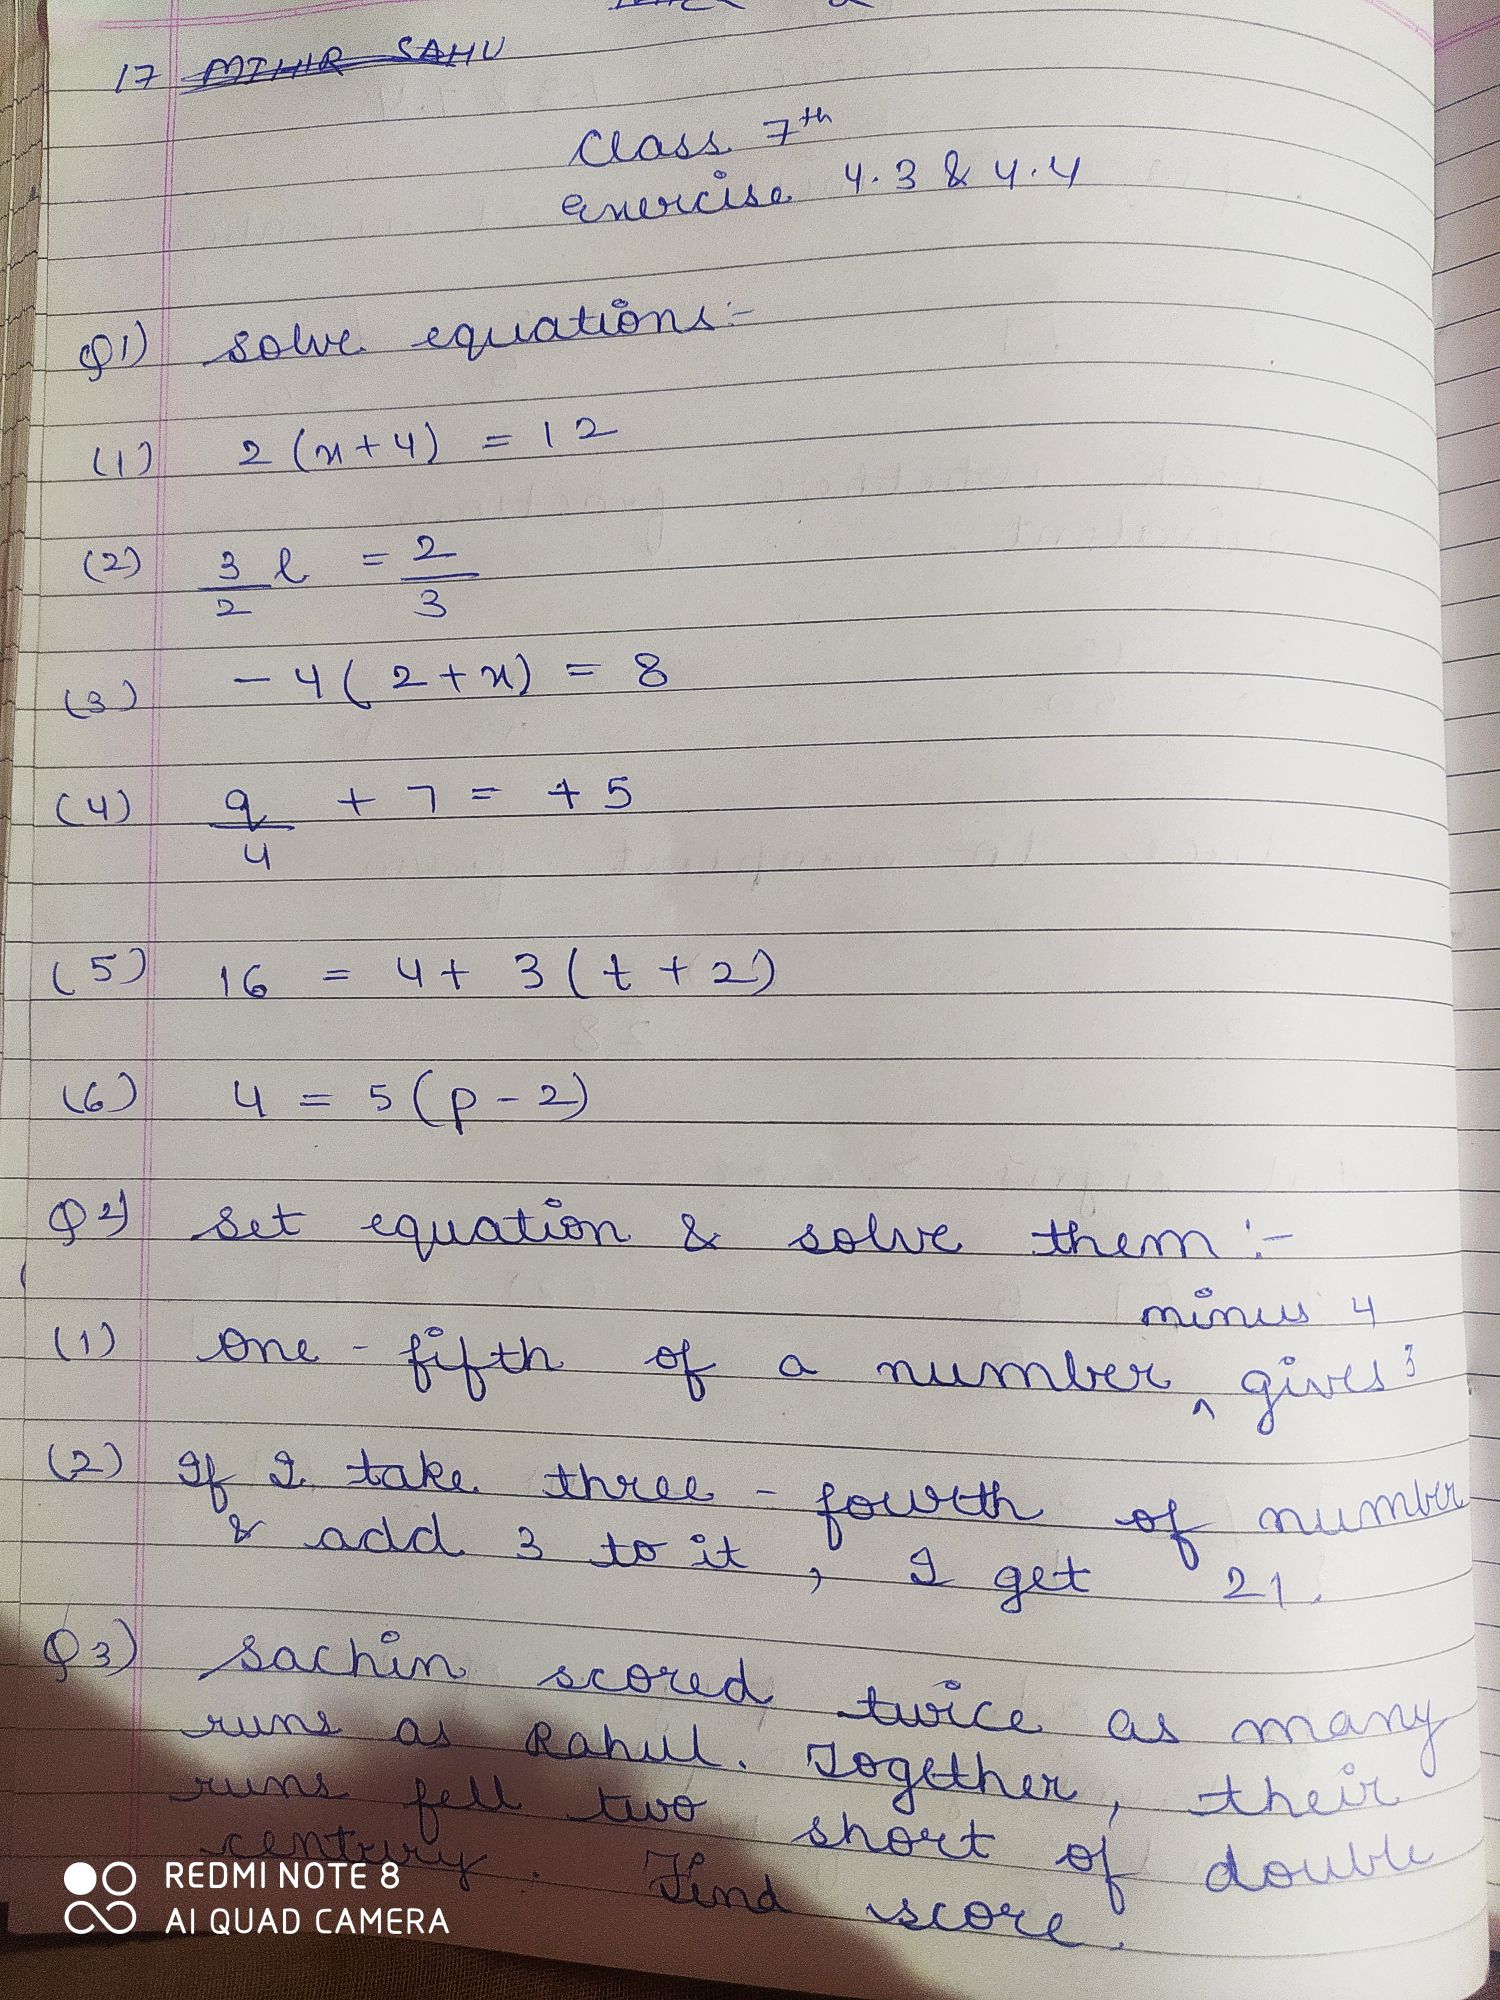 17 MIHIR SAHU
Class 7th
exercise 4.3 & 4.4
Q1) solve equations:-
(1) 2(x+4) = 12
(2) 3/2 l = 2/3
(3) -4(2+x) = 8
(4) q/4 + 7 = +5
(5) 16 = 4+ 3(t+2)
(6) 4 = 5(p-2)
Q2) set equation & solve them :-
minus 4
(1) one-fifth of a number ^ gives 3
(2) If I take three-fourth of number
& add 3 to it, I get 21.
Q3) Sachin scored twice as many
runs as Rahul. Together, their
runs fell two short of double
century. Find score.
REDMI NOTE 8
AI QUAD CAMERA